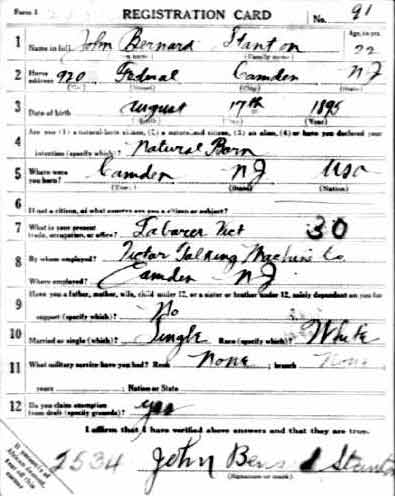 Form 1 REGISTRATION CARD No. 91
1 Name in full John Bernard Stanton Age, in yrs. 22
(Family name)
2 Home address 920 Federal Camden NJ
(No.) (Street) (City) (State)
3 Date of birth August 17th 1895
(Month) (Day) (Year)
Are you (1) a natural-born citizen, (2) a naturalized citizen, (3) an alien, (4) or have you declared your
4 intention (specify which)? Natural Born
5 Where were you born? Camden NJ USA
(Town) (State) (Nation)
6 If not a citizen, of what country are you a citizen or subject?
7 What is your present trade, occupation, or office? Laborer Vict 30
8 By whom employed? Victor Talking Machine Co.
Where employed? Camden NJ
Have you a father, mother, wife, child under 12, or a sister or brother under 12, solely dependent on you for
9 support (specify which)? No
10 Married or single (which)? Single Race (specify which)? White
11 What military service have you had? Rank None ; branch None
years ; Nation or State
12 Do you claim exemption from draft (specify grounds)? yes
I affirm that I have verified above answers and that they are true.
2534 John Stanton
(Signature or mark)
If person is of African descent, tear off this corner